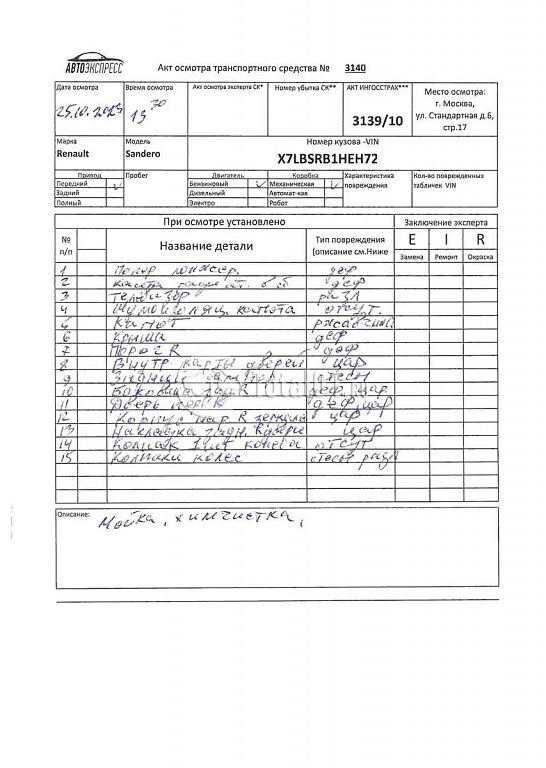 АВТОЭКСПРЕСС
Акт осмотра транспортного средства № 3140
Дата осмотра Время осмотра Акт осмотра эксперта СК* Номер убытка СК** АКТ ИНГОССТРАХ*** Место осмотра:
25.10.2023 3139/10 г. Москва,
ул. Стандартная д.6,
стр.17
Марка Модель Номер кузова -VIN
Renault Sandero X7LBSRB1HEH72
Привод Пробег Двигатель Коробка Характеристика Кол-во поврежденных
Передний V Бензиновый V Механическая V повреждения табличек VIN
Задний Дизельный Автомат-кая
Полный Электро Робот
При осмотре установлено Заключение эксперта
№ п/п Название детали Тип повреждения (описание см.Ниже E I R
Замена Ремонт Окраска
1 деф
2 деф
3 разл
4 капота отсут.
5 Капот ржавчина
6 Крыша деф
7 Порог R деф
8 Внутр карты дверей цар
9 Задний
10 R деф цар
11 Дверь R деф цар
12 Корпус R зеркала цар
13 Накладка R двери цар
14 Колпак колеса отсут
15 Колпаки колес
Описание: Мойка, химчистка,